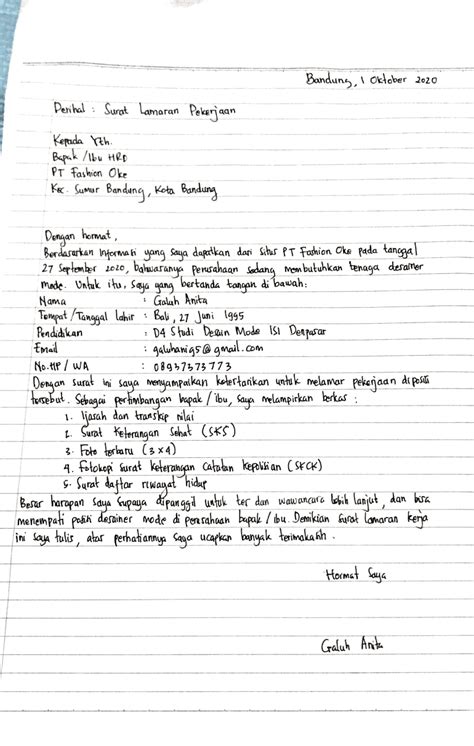 Bandung, 1 Oktober 2020
Perihal : Surat Lamaran Pekerjaan
Kepada Yth.
Bapak / Ibu HRD
PT Fashion Oke
Kec. Sumur Bandung, Kota Bandung
Dengan hormat,
Berdasarkan informasi yang saya dapatkan dari situs PT Fashion Oke pada tanggal
27 September 2020, bahwasanya perusahaan sedang membutuhkan tenaga desainer
mode. Untuk itu, saya yang bertanda tangan di bawah:
Nama : Galuh Anita
Tempat / Tanggal lahir : Bali, 27 Juni 1995
Pendidikan : D4 Studi Desain Mode ISI Denpasar
Email : galuhani95@gmail.com
No.HP / WA : 08937373773
Dengan surat ini saya menyampaikan ketertarikan untuk melamar pekerjaan diposisi
tersebut. Sebagai pertimbangan bapak / ibu, saya melampirkan berkas :
1. Ijasah dan transkip nilai
2. Surat Keterangan Sehat (SKS)
3. Foto terbaru (3x4)
4. Fotokopi surat keterangan catatan kepolisian (SKCK)
5. Surat daftar riwayat hidup
Besar harapan saya supaya dipanggil untuk tes dan wawancara lebih lanjut, dan bisa
menempati posisi desainer mode di perusahaan bapak / ibu. Demikian surat lamaran kerja
ini saya tulis, atas perhatiannya saya ucapkan banyak terimakasih.
Hormat Saya
Galuh Anita